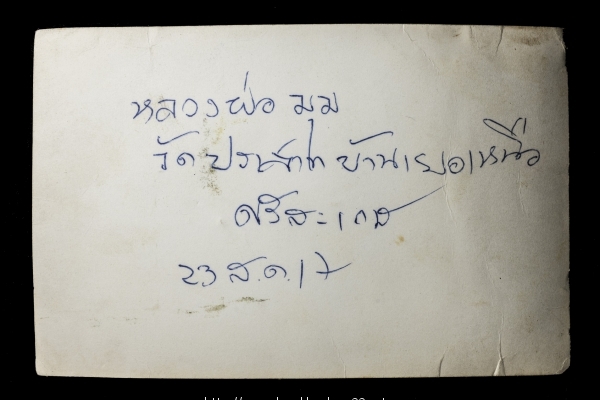 หลวงพ่อ มุม
วัดปราสาท บ้านเยอเหนือ
ศรีสะเกส
23 ส.ค. 17